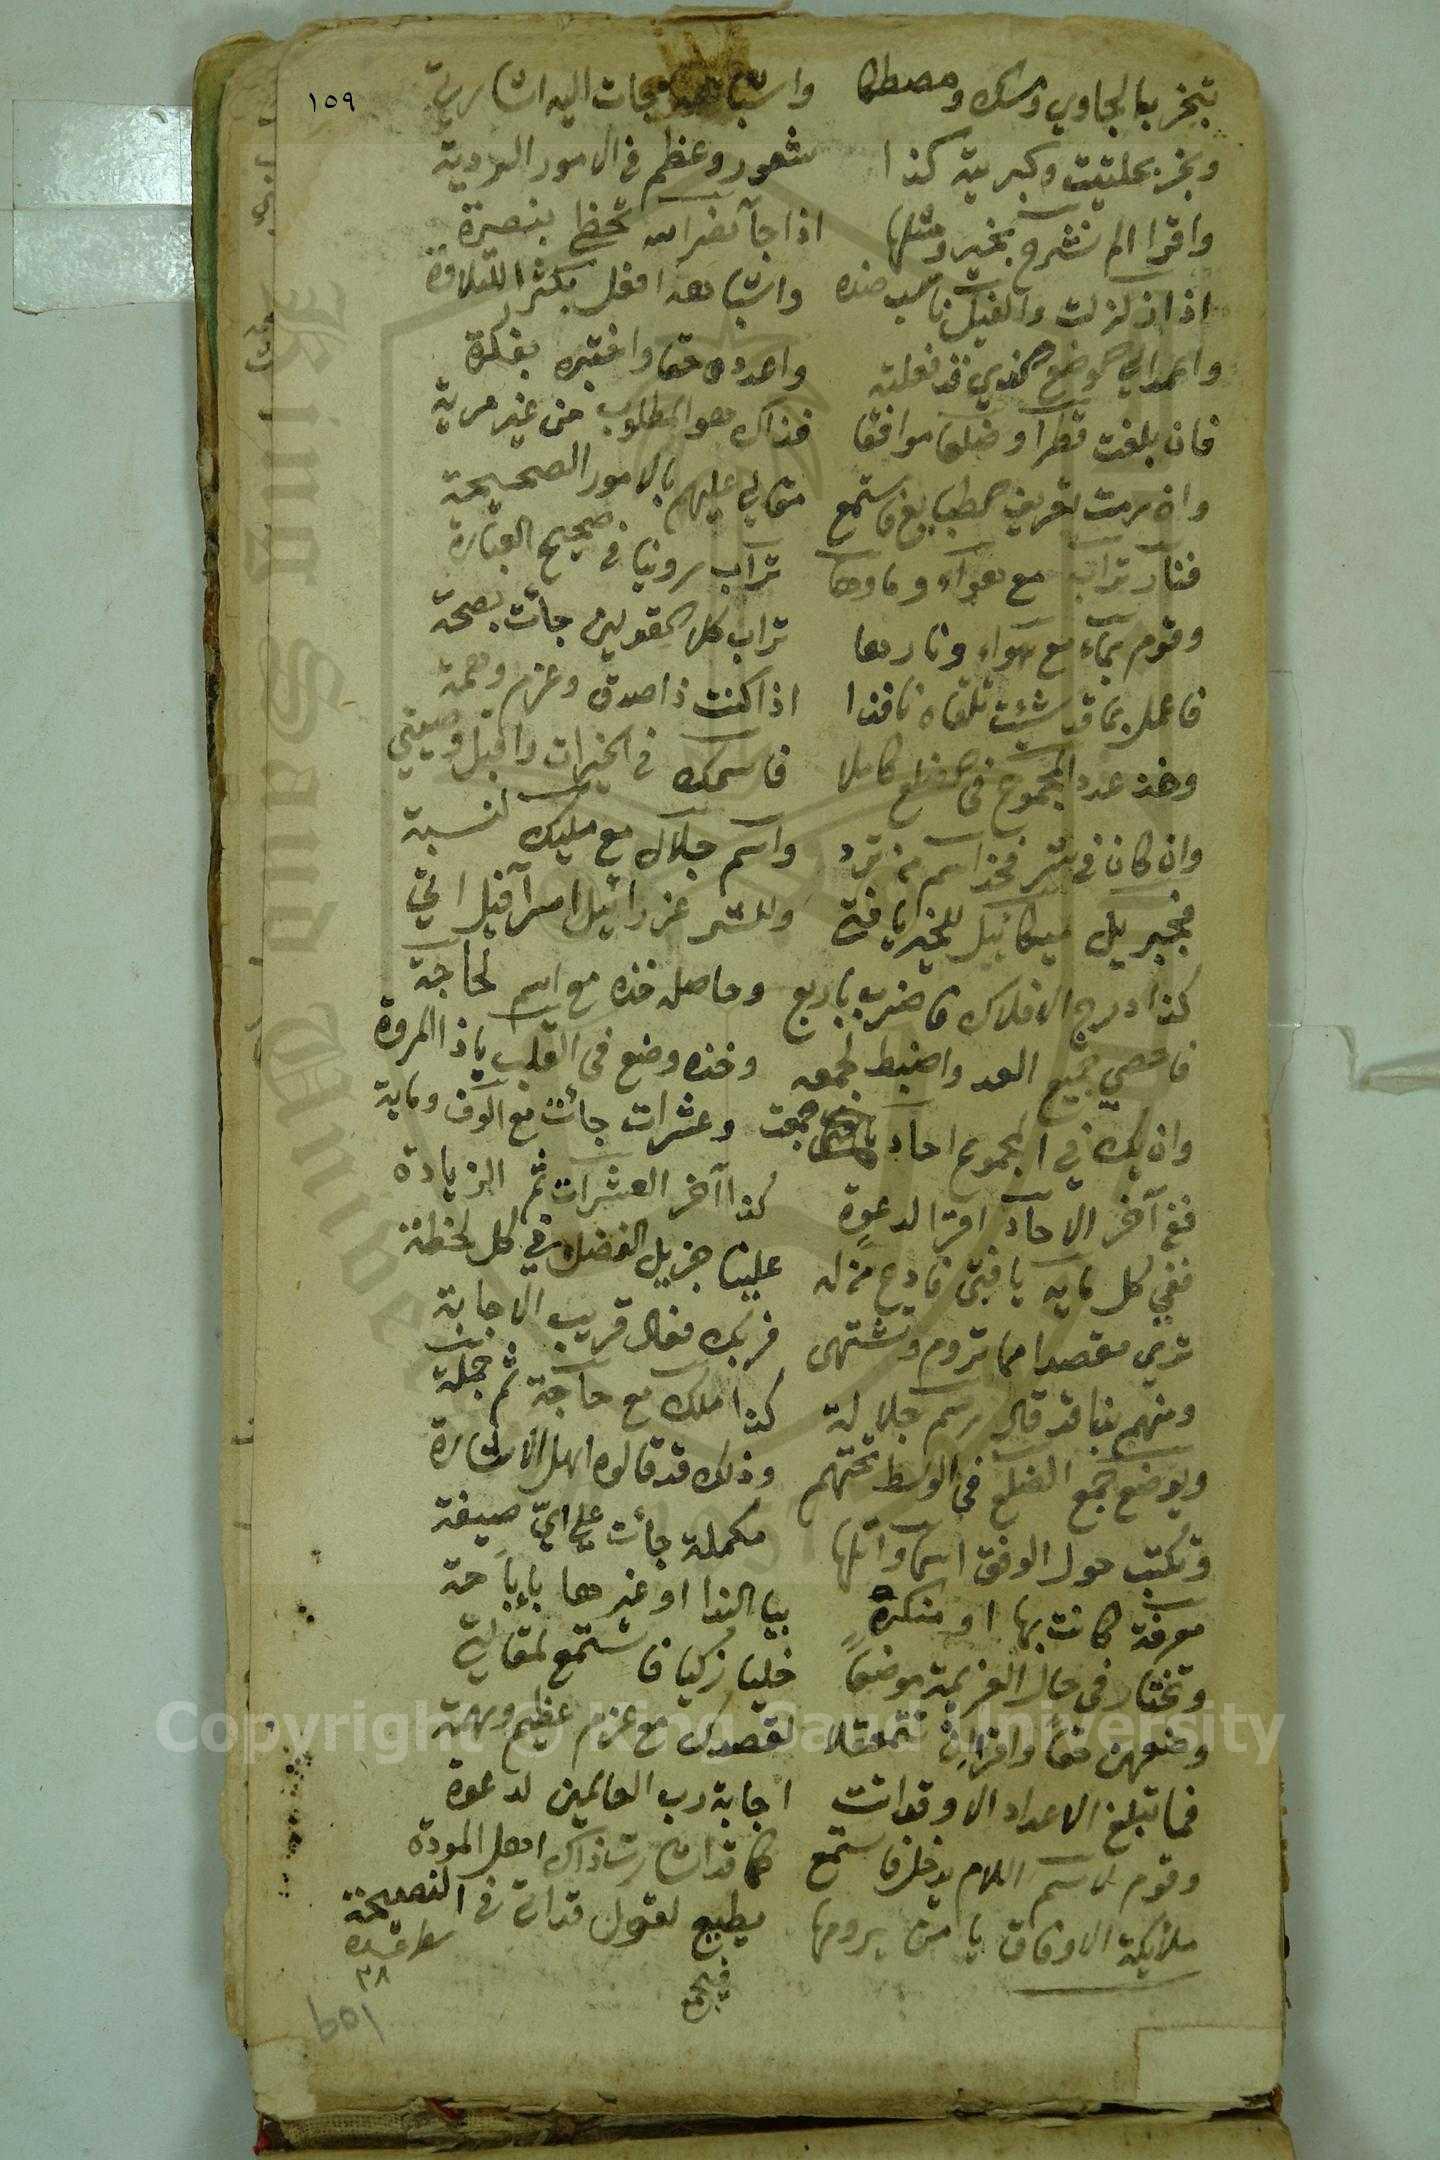 ١٥٩
تبخر بالجاوي ومسك ومصطكا واشباهها جات اليه اشارتي
وبخر بحلتيت وكبريته كذا شعور وعظم في الامور الردية
واقرا الم نشرح بخير ومثلها اذا جآ نصر الله تحظى بنصرة
اذا زلزلت والفيل ناسب ضده واشباهها افعل بكثر التلاوة
واحمد الي موضع الذي قد فعلته واعدده حقا واختبره بفكرة
فان بلغت قطرا وضلعا موافقا فذاك هو المطلوب من غير مرية
وان رمت تعريف الطبايع فاستمع مقالي عليهم بالامور الصحيحة
فنار تراب مع هواء وماوها تراب روينا في صحيح العبارة
وقوم بماء مع هواء ونارها تراب كلا القولين جائت بصحة
فاعمل بما قد شئت تلقاه نافذا اذا كنت ذا صدق وعزم وهمة
وخذ عدد المجموع في الضلع كاملا فاسمك في الخيرات واقبل وصيتي
وان كان في شر فخذ اسم من ترد واسم جلال مع مليك لنسبة
فجبريل ميكائيل للخير يا فتى وللشر عزرائيل اسرآفيل اتي
كذا درج الافلاك فاضرب باربع وحاصله خذه مع اسم لحاجة
فاحصي جميع العد واضبط لجمعه وخذه وضع في القلب ياذا المروة
وان يك في المجموع احآد جمعت وعشرات جائت مع الوف ومايه
ففي آخر الآحاد اقرا لدعوة كذا آخر العشرات ثم الزيادة
ففي كل مايه يا فتى فادع من له علينا جزيل الفضل في كل لحظة
ترى مقصدا مما تروم وتشتهى فربك فعال قريب الاجابة
ومنهم بنا قد قال رسم جلالة كذا ملك مع حآجة ثم جملة
ويوضع جمع الضلع في الوسط تحتهم وذلك قد قالوه اهل الاشارة
وتكتب حول الوفق اسما واتلها مكملة جائت على اي صيغة
معرفة كانت بها او منكرة بيا الندا او غيرها باباحة
وتختار في حال العزيمة موضعا خليا زكيا فاستمع لمقالتي
وضعهن حقا واقران لقصدك مع عزم عظيم وهمة
فما تبلغ الاعداد الا وقد اتت اجابة رب العالمين لدعوة
وقوم لاسم اللام يدخل فاستمع كما قد اشارت ذاك اهل المودة
ملايكة الاوفاق يا من يرومها يطيع لقول قد اتى في النصيحة
فيجمع
٣٨
١٥٩
Copyright © King Saud University